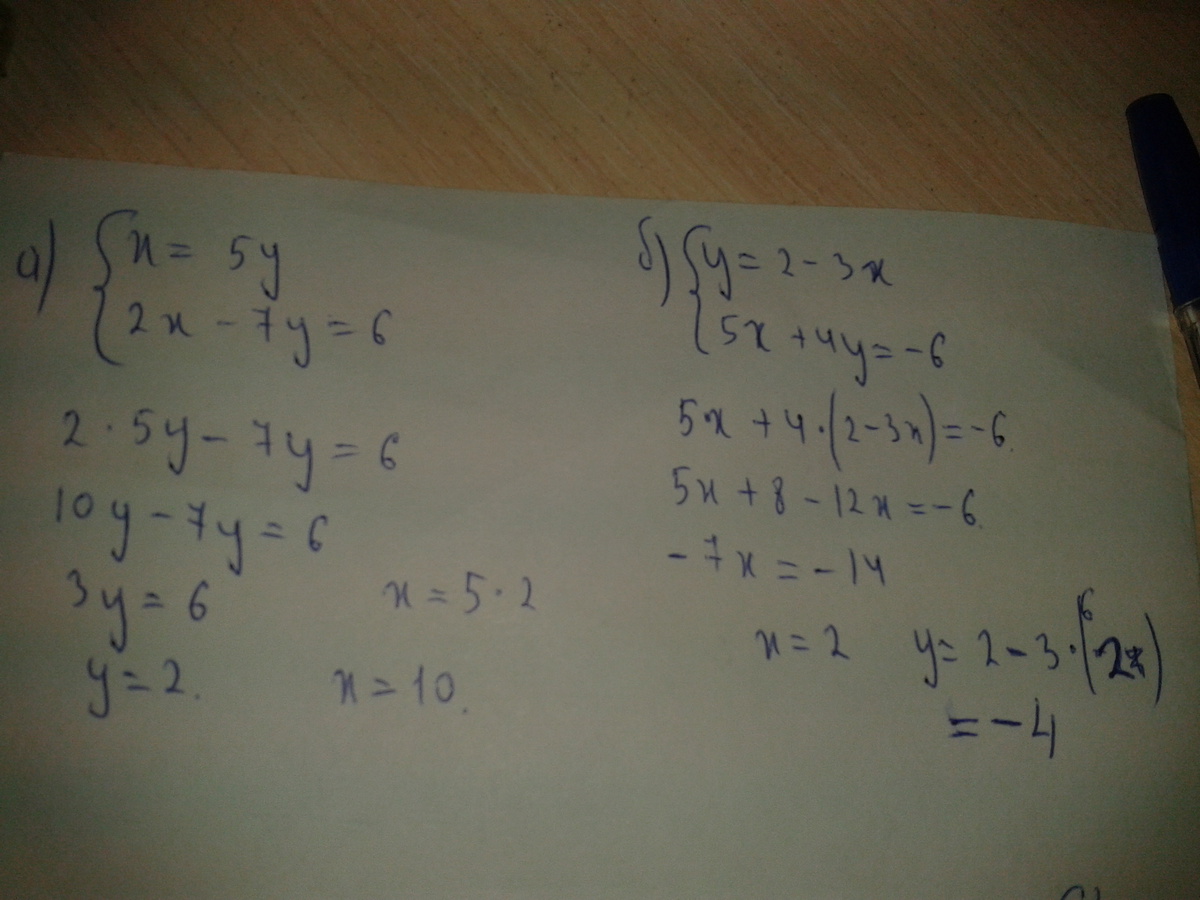 а) { x = 5y
2x - 7y = 6
2 · 5y - 7y = 6
10y - 7y = 6
3y = 6
x = 5 · 2
y = 2.
x = 10.
б) { y = 2 - 3x
5x + 4y = -6
5x + 4 · (2 - 3x) = -6.
5x + 8 - 12x = -6.
-7x = -14
x = 2
6
y = 2 - 3 · (2)
= -4